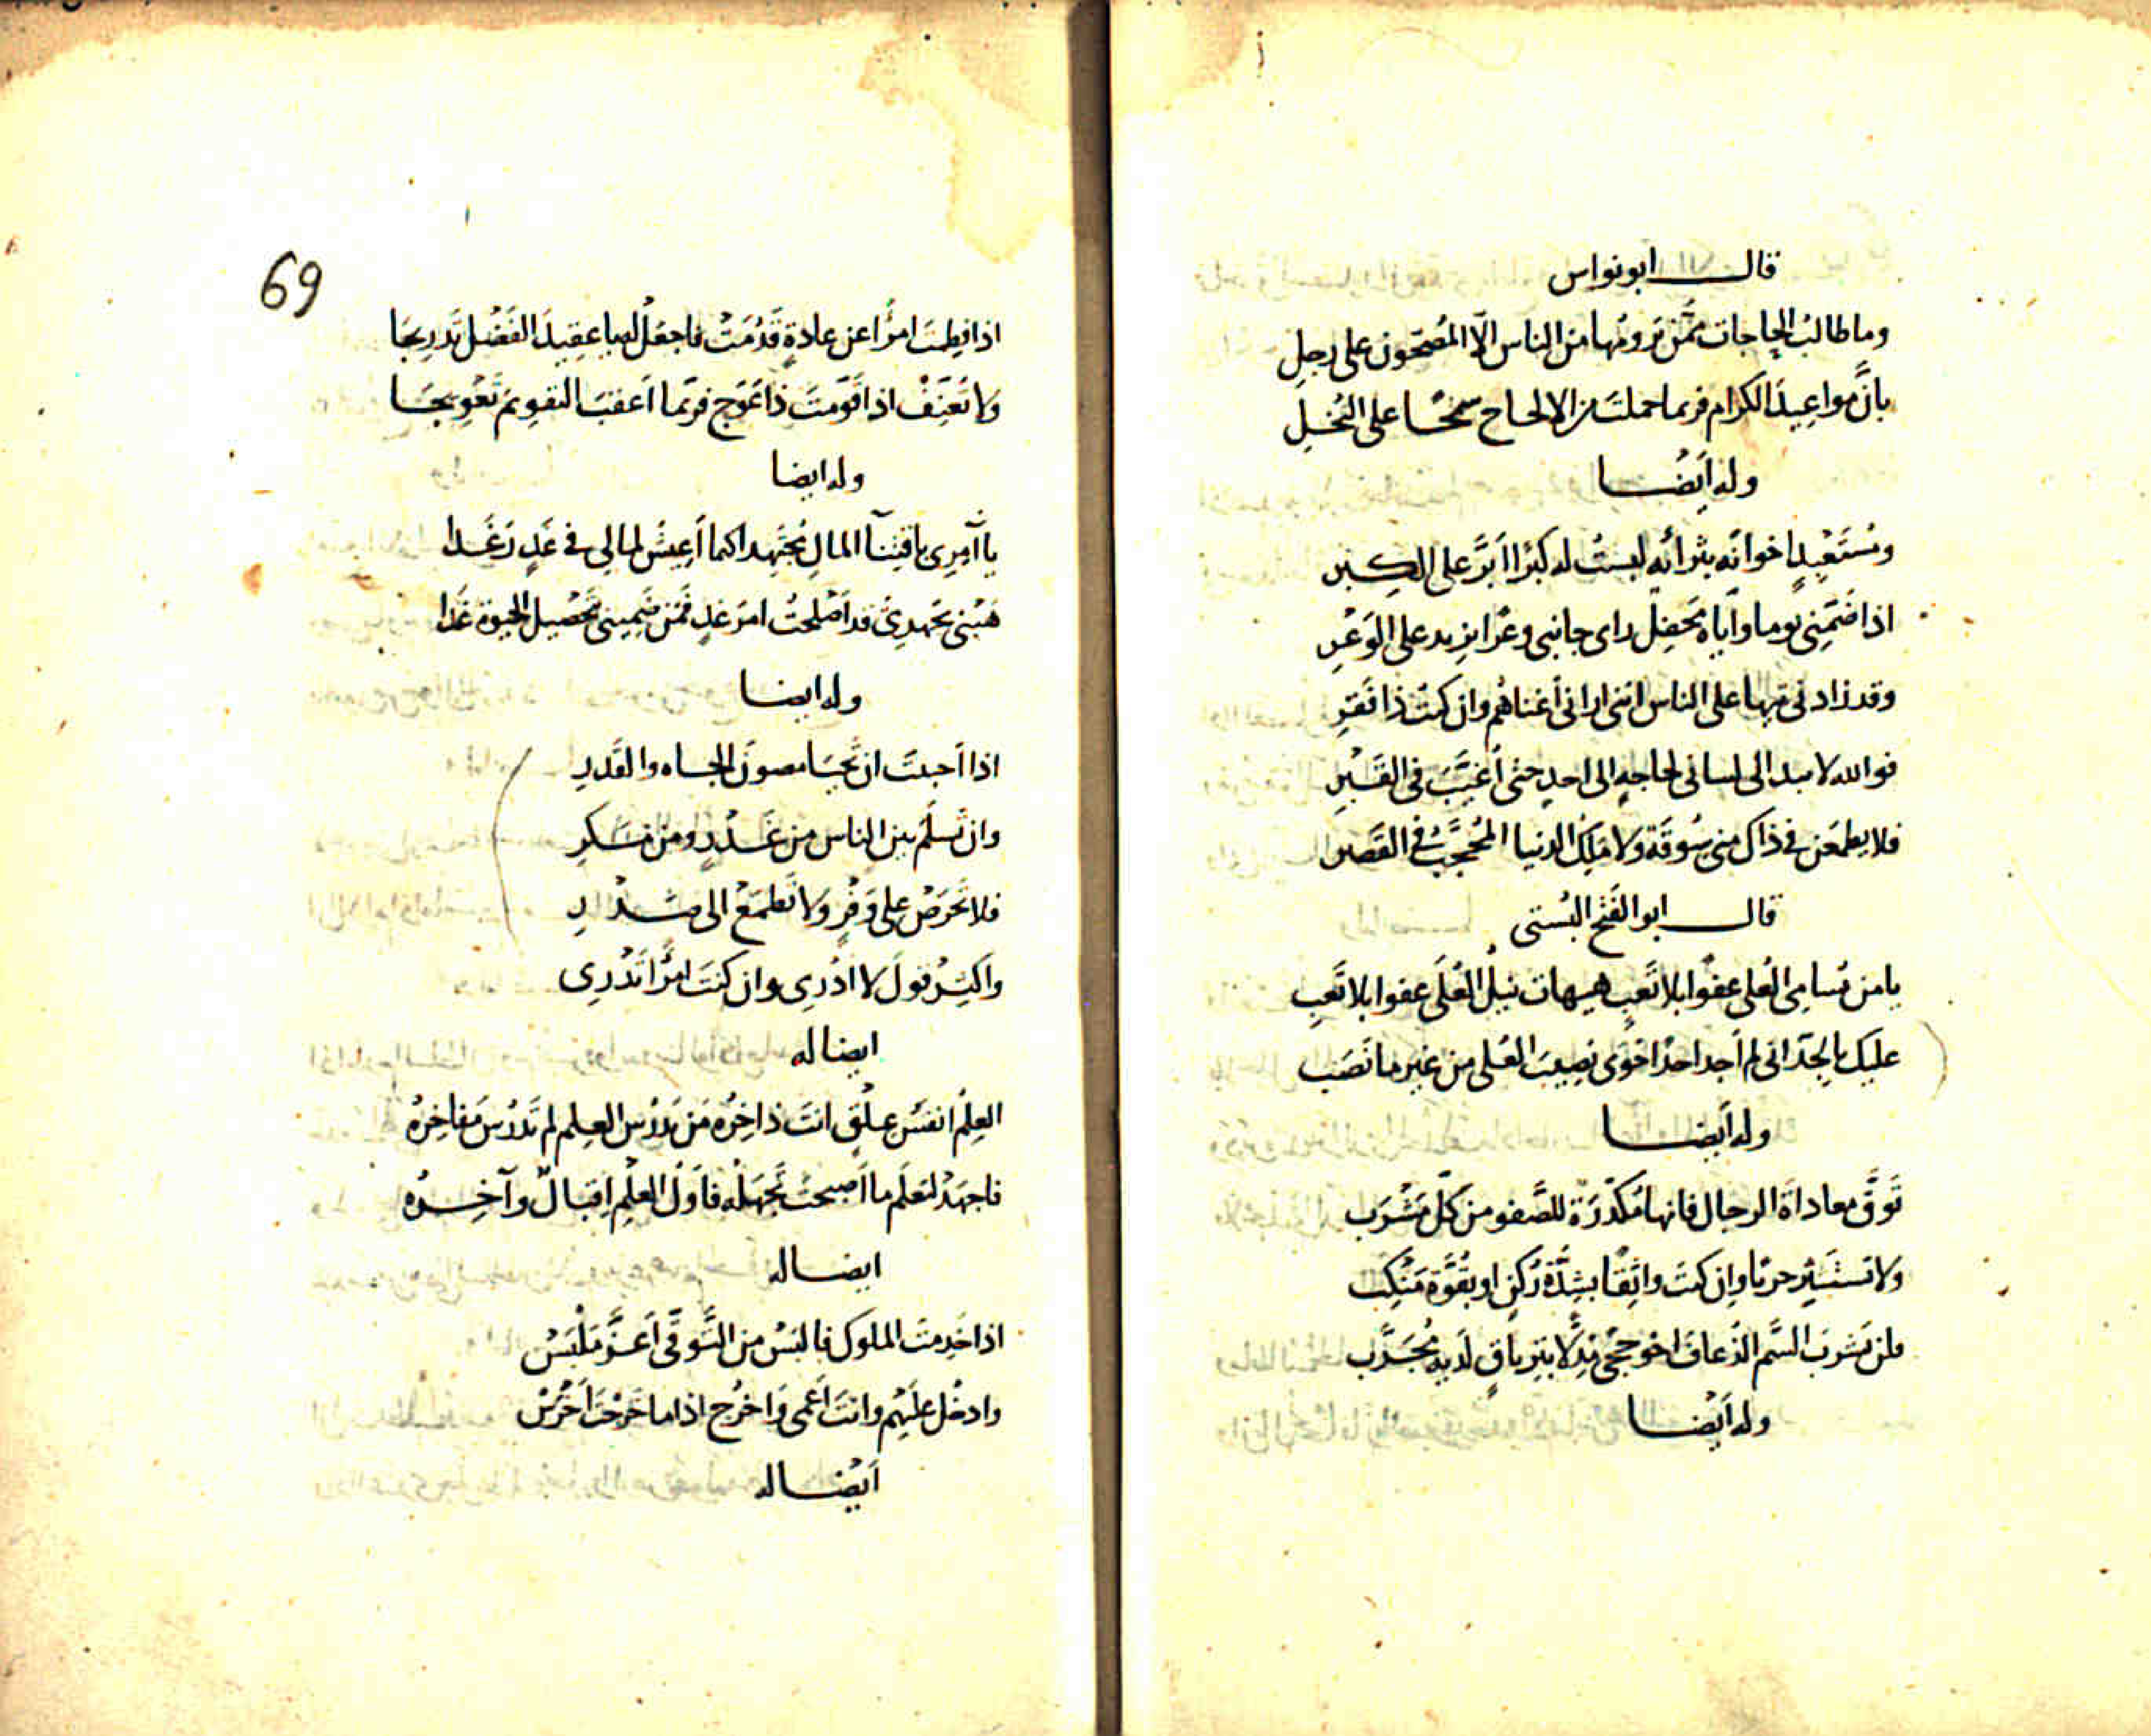 قال ابو نواس
وما طالبُ الحاجات ممّن يرومُها من الناس الّا المُصبحون على رجلِ
تأنَّ مواعيدَ الكرام فربما حملتَ من الالحاح سَمْحًا على البُخلِ
وله أيضًا
ومُستَعْبِدٍ اخوانَه بثرائِه لبستُ له كبرًا أبرَّ على الكبرِ
اذا ضمّنِى يومًا وإياه مَحفِل راى جانبى وعْرا يزيد على الوَعْرِ
وقد زادنى تيها على الناس انّنى ارانى أغناهُم وان كنتُ ذا فَقرِ
فوالله لا يبدى لسانى لحاجةٍ الى احدٍ حتى أُغَيَّبَ فى القَبْرِ
فلا يطمعَن فى ذاك منى سُوقَة ولا مَلِك الدنيا المُحجَّبُ فى القَصر
قال ابو الفَتح البُستى
يا من يُسامى العُلى عفوًا بلا تَعَبٍ هيهات نيلُ العُلَى عفوا بلا تَعبِ
عليك بالجِدّ انى لم أجد احدًا حَوى نصيبَ العُلى من غير ما نَصَب
وله أيضا
تَوقَّ معاداةَ الرجال فانها مُكدّرَة للصَّفو من كلّ مَشْرَب
ولا تستَثِر حربًا وإن كنتَ واثِقًا بشِدَّة رُكنٍ او بقُوَّة مَنْكِب
فلن يَشربَ السَّم الذُعافَ اخو حِجًى مُدِلًّا بتِرياقٍ لَديه مُجَرَّب
وله أَيْضا
69
اذا فَطمتَ امرُأ عن عادةٍ قَدُمَتْ فاجعَلْ لها يا عقيدَ الفَضْل تَدرِيجَا
ولا تُعَنِّفْ اذا قَوّمتَ ذا عَوَج فربّما أعقبَ التقويمُ تَعْويجَا
وله ايضا
يا آمِرِى باقتِنآ المالِ مُجتَهِدا كيما أَعِيشُ لمالى فى غَدٍ رَغَدا
هَبْنى بجَهدِىَ قد أصْلحتُ امرَ غدٍ فَمَن ضَمِينى بتَحْصيل الحيوة غَدا
وله ايضا
اذا أحببتَ ان تَحْيَا مصونَ الجاه والقَدرِ
وان تَسلَمَ بين الناس من غَدْرٍ ومن مَكرِ
فلا تَحْرَصْ على وَفْرٍ ولا تَطمَعْ الى صَدْرِ
واكثِرْ قولَ لا ادْرِى وان كنتَ امرُأ تَدْرِى
ايضا له
العِلمُ انفَسُ عِلْقٍ انتَ ذاخِرُه مَن يَدْرُس العِلم لم تَدرُس مَفاخِرُهُ
فاجهَدْ لتعلَم ما أصبحتَ تَجْهَلُه فأوّلُ العِلْمِ اقبالٌ وآخِرُه
ايضا له
اذا خَدِمتَ الملوك فالبَسْ من التَّوَقّى أعزَّ مَلْبَسْ
وادخُل عليهم وانتَ أعمى وَاخرُج اذا ما خَرَجْتَ أخْرَسْ
أَيْضا له